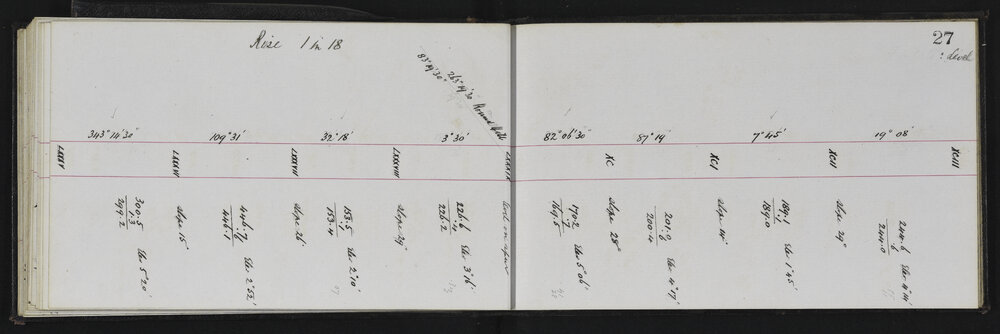 Rise 1 in 18
27
: Level
83° 19' 30"
265° 19' 30"
343° 14' 30"
109° 31'
32° 18'
3° 30'
82° 06' 30"
87° 19'
7° 45'
19° 08'
LXXXV
LXXXVI
LXXXVII
LXXXVIII
LXXXIX
XC
XCI
XCII
XCIII
300.5
1.3
299.2
Ele. 5° 20'
Slope 15'
Ele. 2° 52'
446.1
Slope 26'
153.5
153.4
Ele. 2° 10'
Slope 29'
226.6
.4
226.2
Ele. 3° 16'
170.2
.7
169.5
Ele. 5° 06'
Slope 28'
201.0
.6
200.4
Ele. 4° 17'
Slope 14'
189.1
.1
189.0
Ele. 1° 45'
Slope 29'
244.6
.6
244.0
Ele. 4° 14'